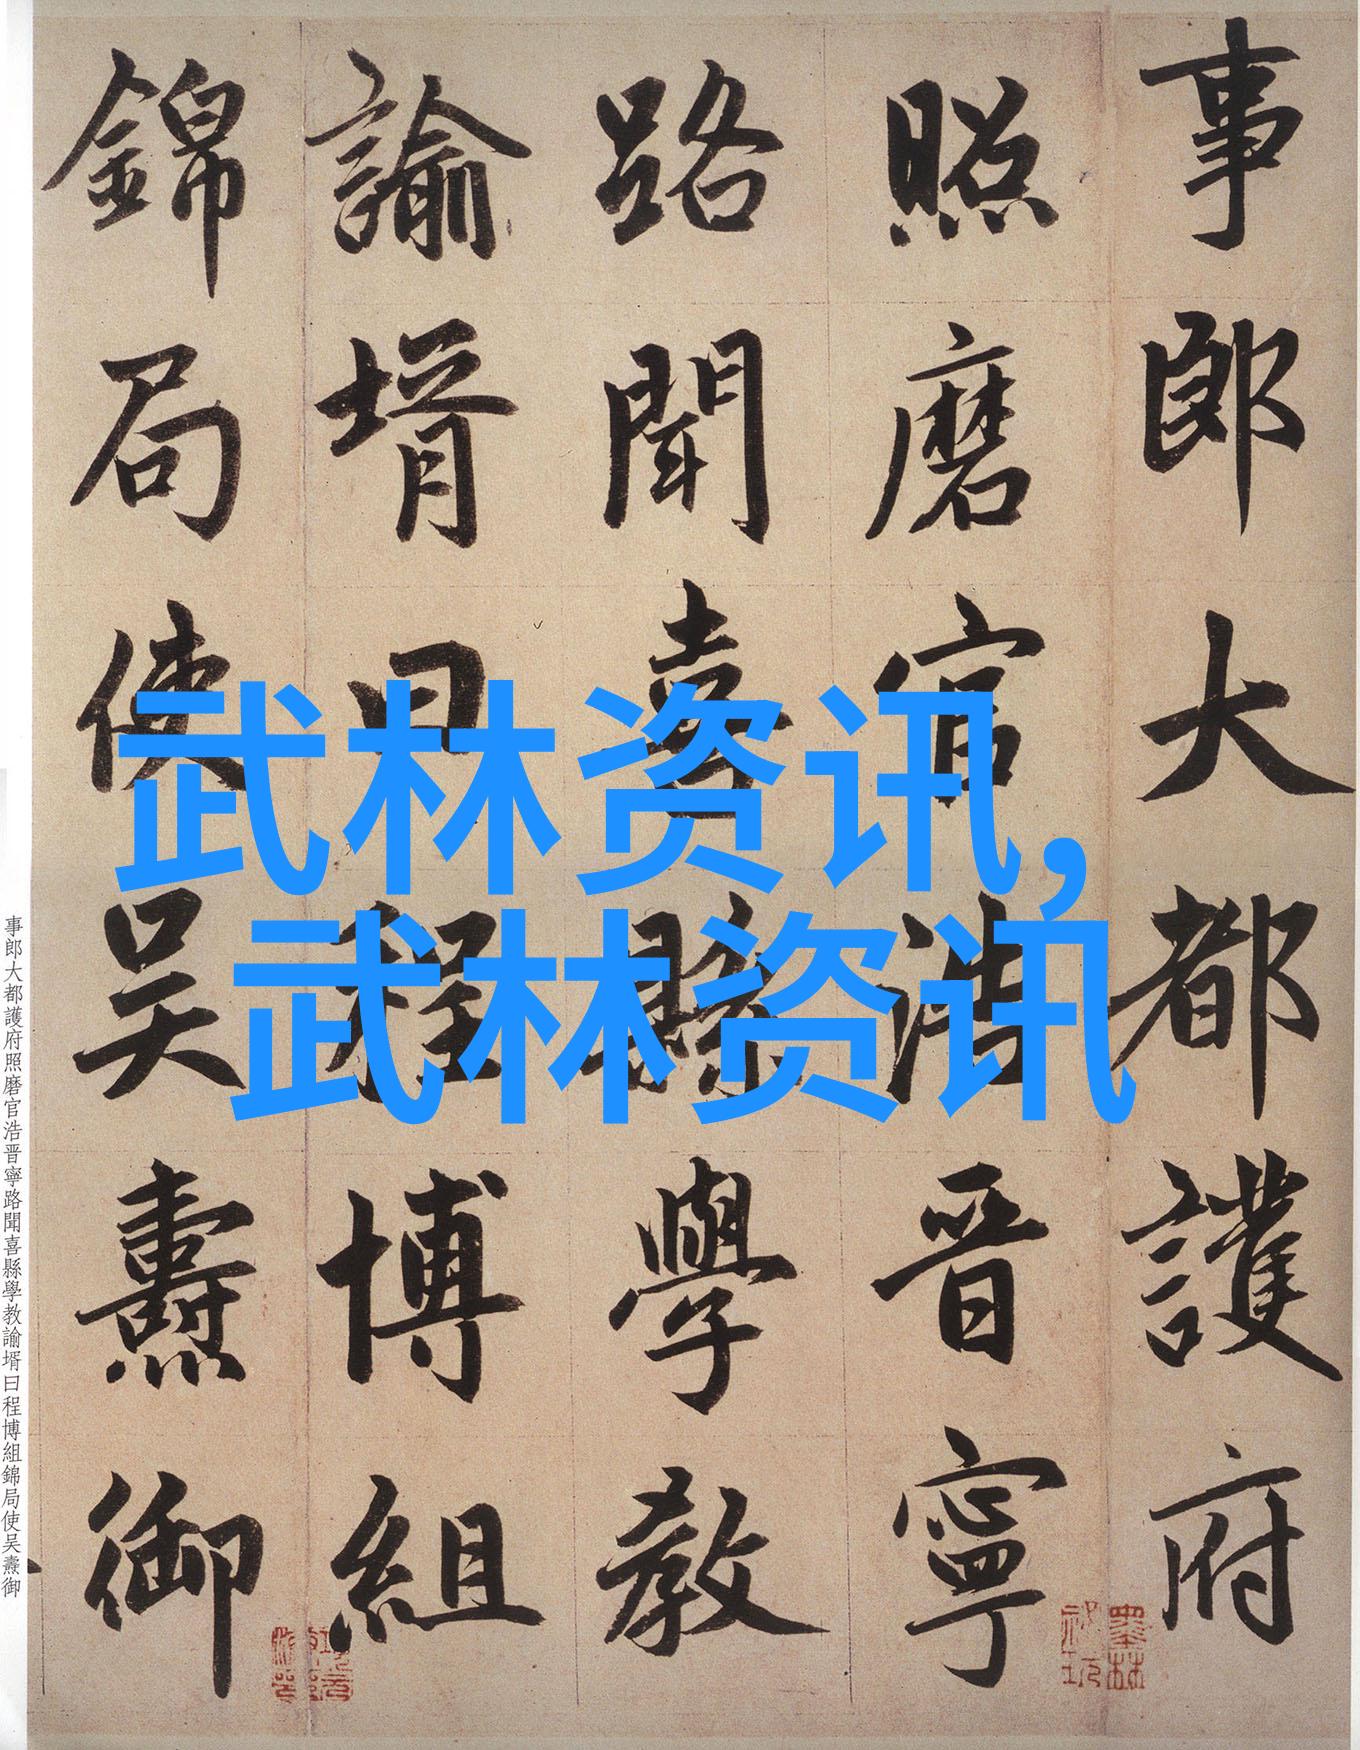 事郎大都護府
照磨官浩晋寧
路聞喜縣學教
諭壻曰程博組
錦局使吴燾御
武林资讯,
武林资讯
事郎大都護府照磨官浩晋寧路聞喜縣學教諭壻曰程博組錦局使吴燾御